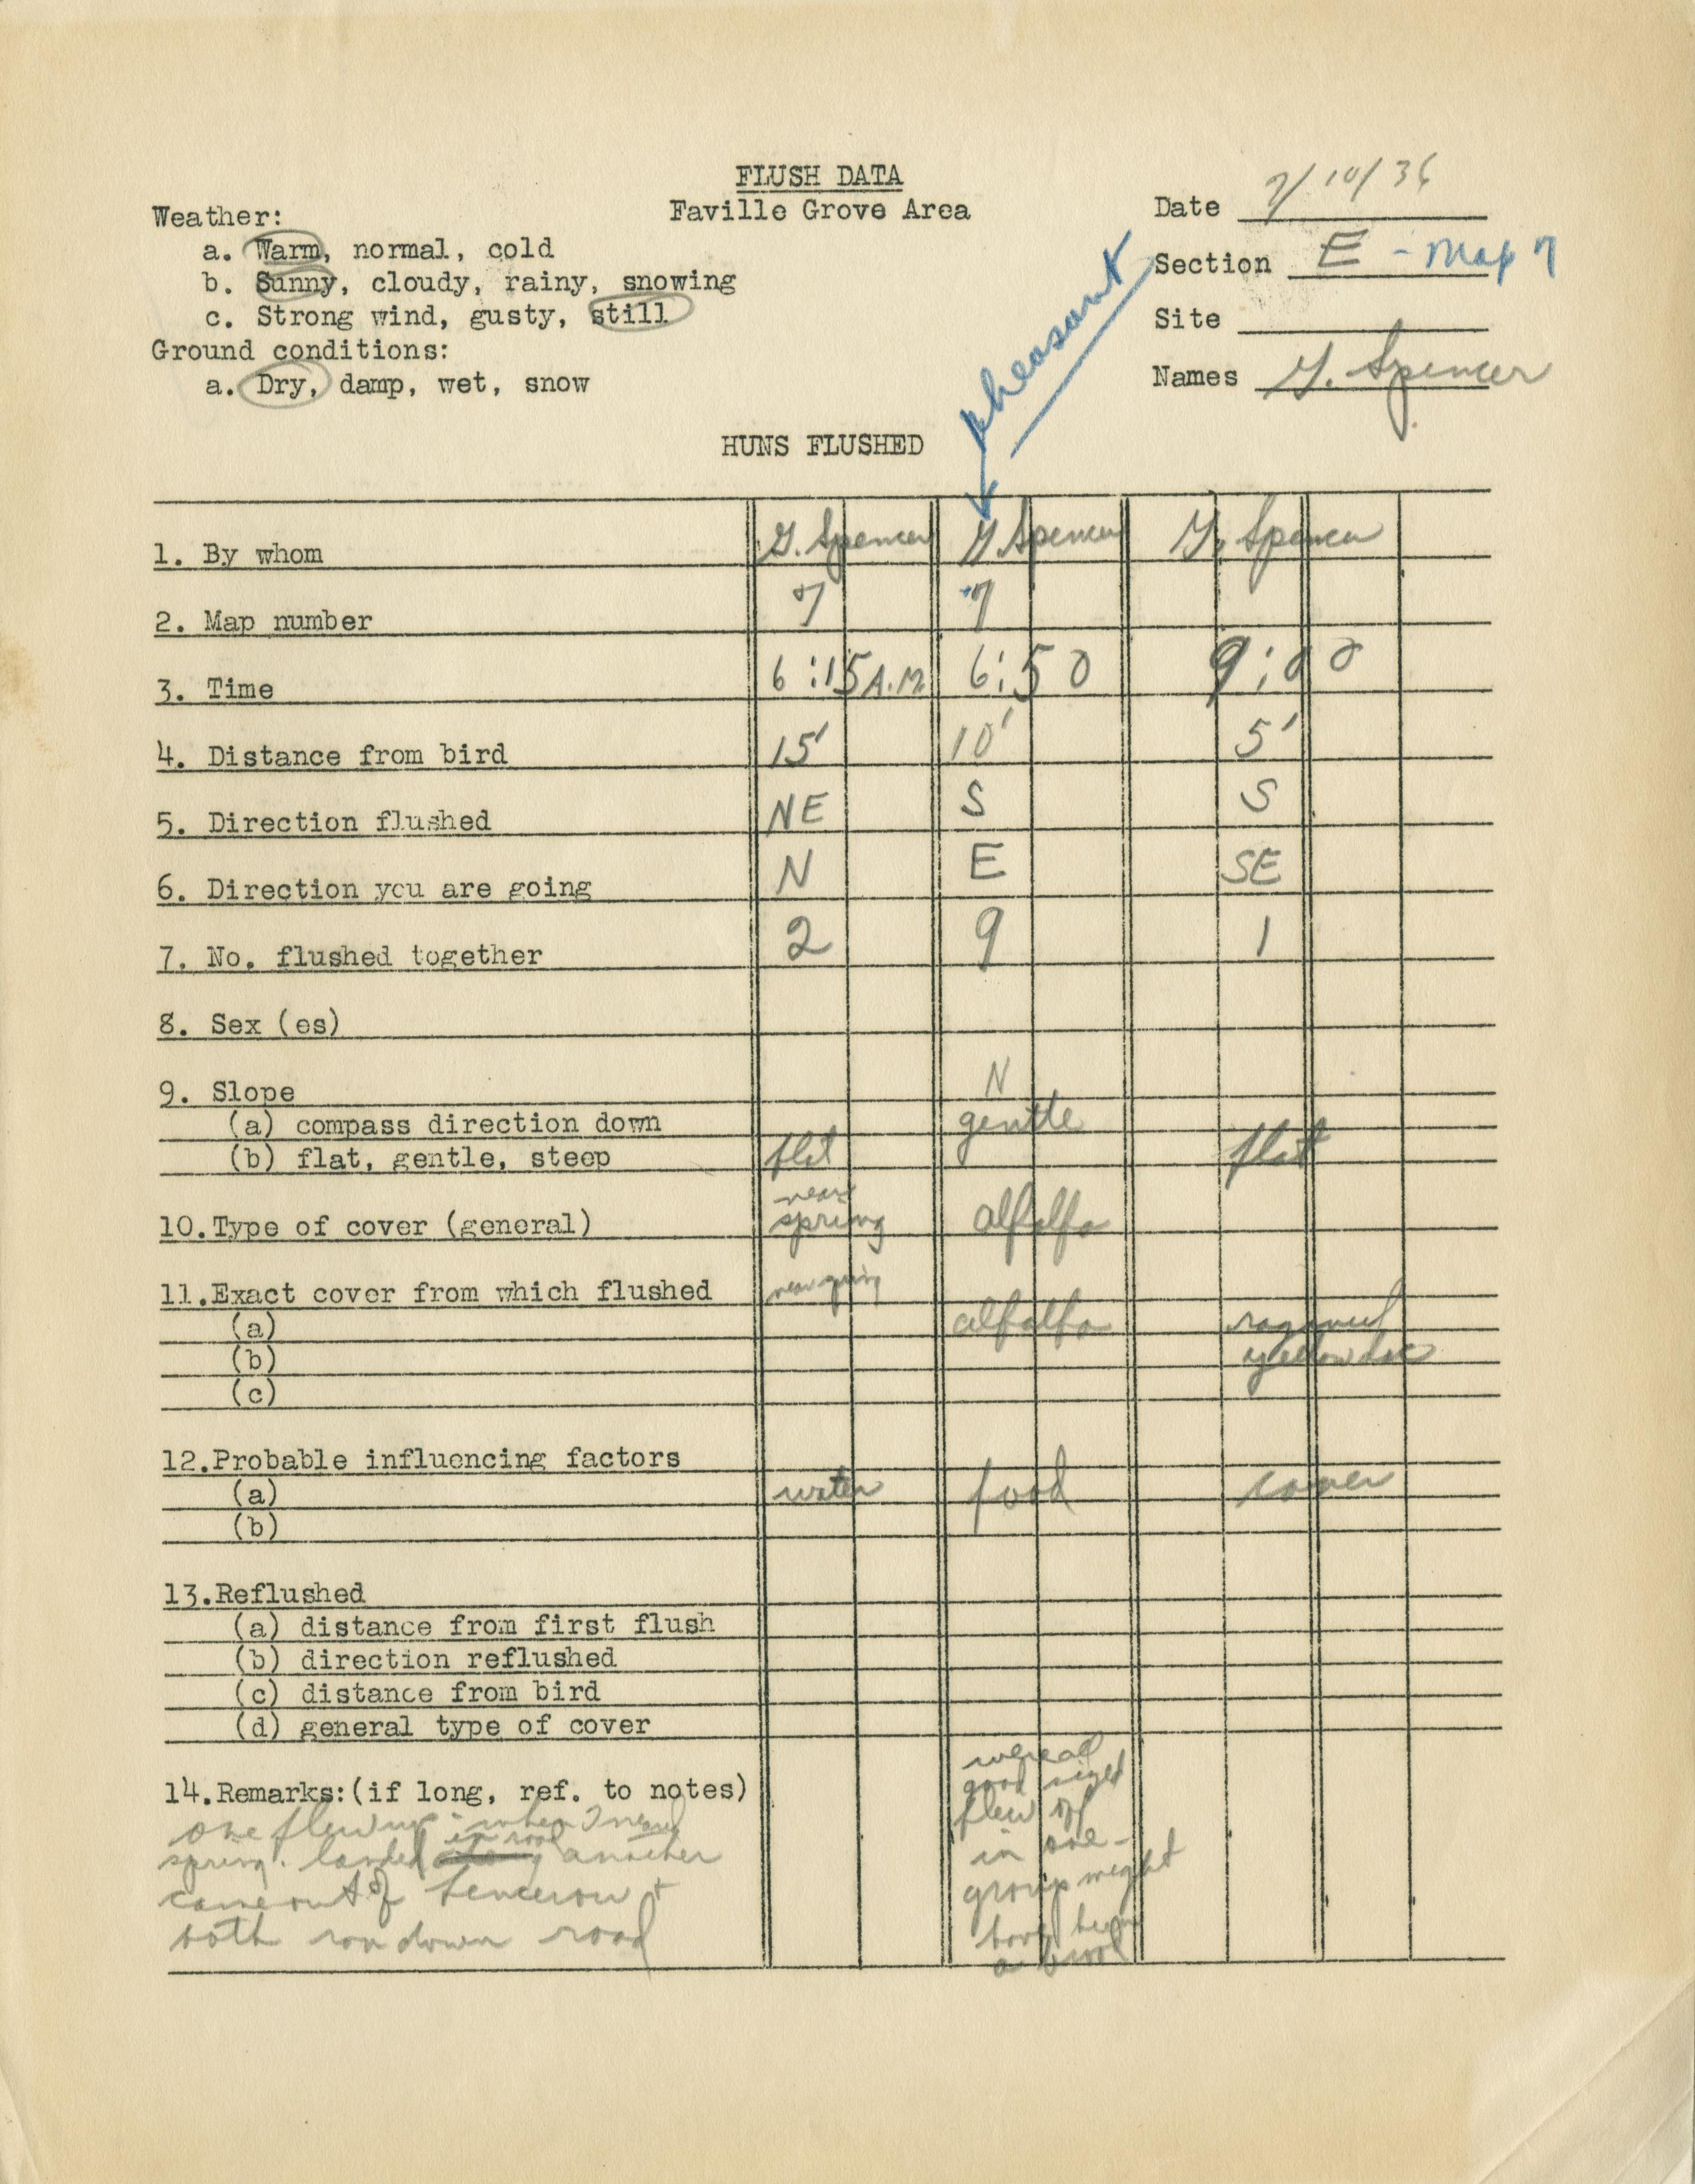 FLUSH DATA
Faville Grove Area
Date 7/10/36
Weather:
a. Warm, normal, cold
Section E - Map 7
b. Sunny, cloudy, rainy, snowing
c. Strong wind, gusty, still
Site
Ground conditions:
a. Dry, damp, wet, snow
Names G. Spencer
pheasant
HUNS FLUSHED
1. By whom G. Spencer G. Spencer G. Spencer
2. Map number 7 7
3. Time 6:15 A.M. 6:50 9:00
4. Distance from bird 15' 10' 5'
5. Direction flushed NE S S
6. Direction you are going N E SE
7. No. flushed together 2 9 1
8. Sex (es)
9. Slope N
(a) compass direction down gentle
(b) flat, gentle, steep flat flat
near
10. Type of cover (general) spring alfalfa
11. Exact cover from which flushed near spring
(a) alfalfa ragweed
(b) yellow dock
(c)
12. Probable influencing factors
(a) water food cover
(b)
13. Reflushed
(a) distance from first flush
(b) direction reflushed
(c) distance from bird
(d) general type of cover
14. Remarks: (if long, ref. to notes)
one flew up when I neared
in road
spring. landed another
came out of fencerow +
both ran down road
were all
good sized
flew off
in one
group might
have been
a brood